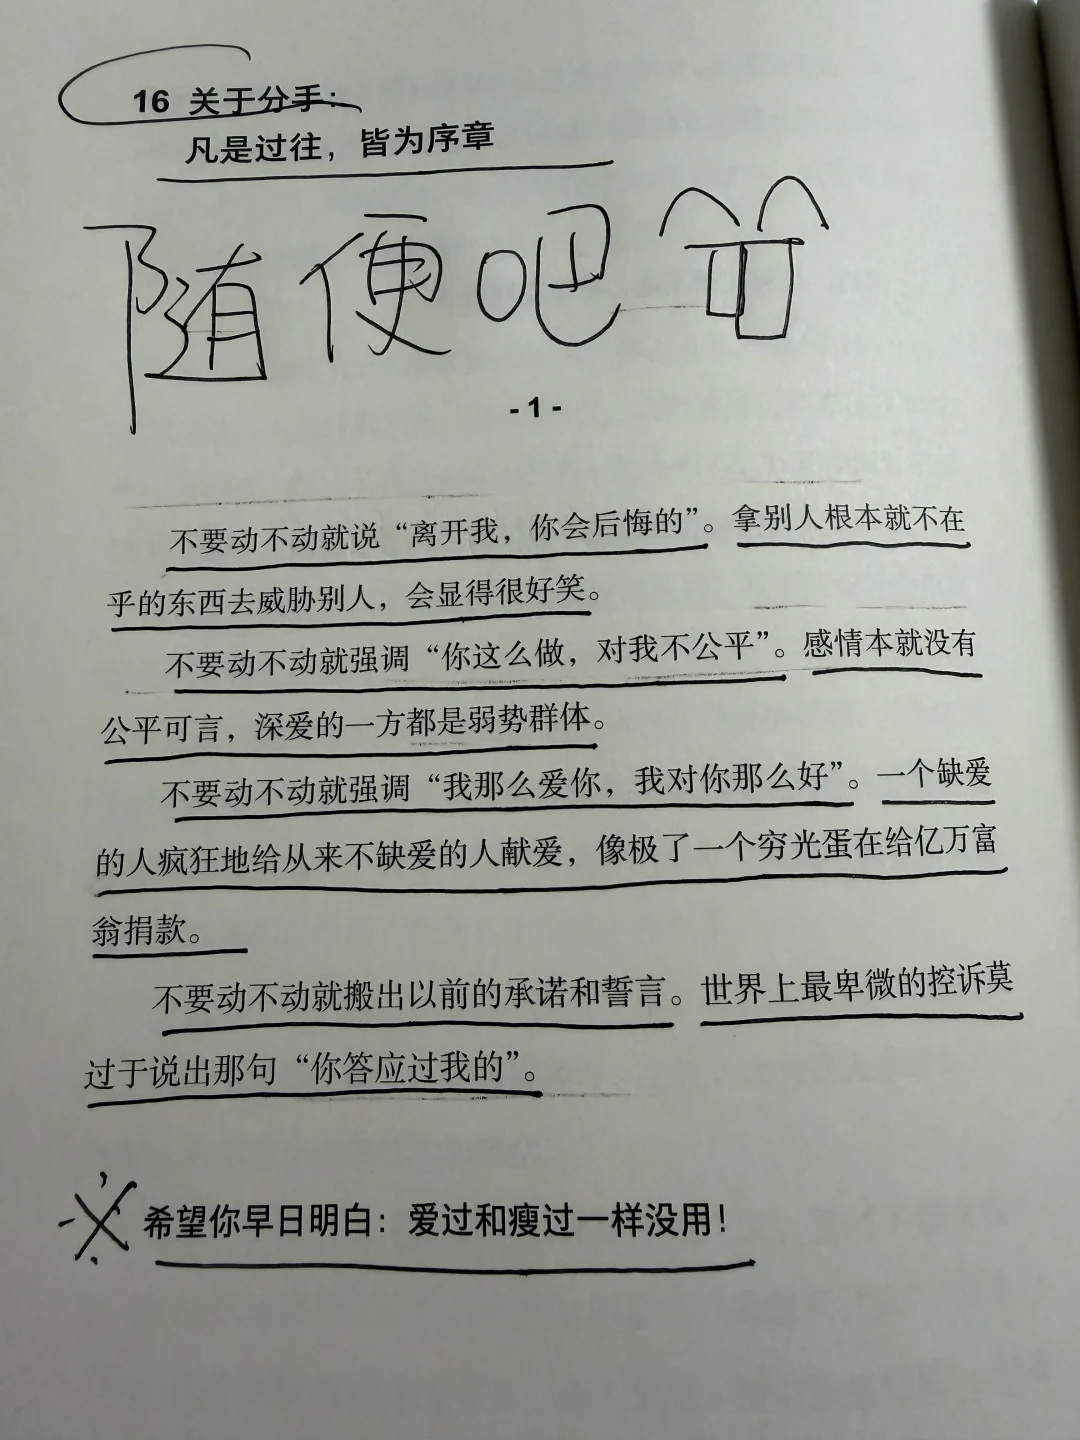 16 关于分手：
凡是过往，皆为序章
随便吧
- 1 -
不要动不动就说“离开我，你会后悔的”。拿别人根本就不在
乎的东西去威胁别人，会显得很好笑。
不要动不动就强调“你这么做，对我不公平”。感情本就没有
公平可言，深爱的一方都是弱势群体。
不要动不动就强调“我那么爱你，我对你那么好”。一个缺爱
的人疯狂地给从来不缺爱的人献爱，像极了一个穷光蛋在给亿万富
翁捐款。
不要动不动就搬出以前的承诺和誓言。世界上最卑微的控诉莫
过于说出那句“你答应过我的”。
希望你早日明白：爱过和瘦过一样没用！